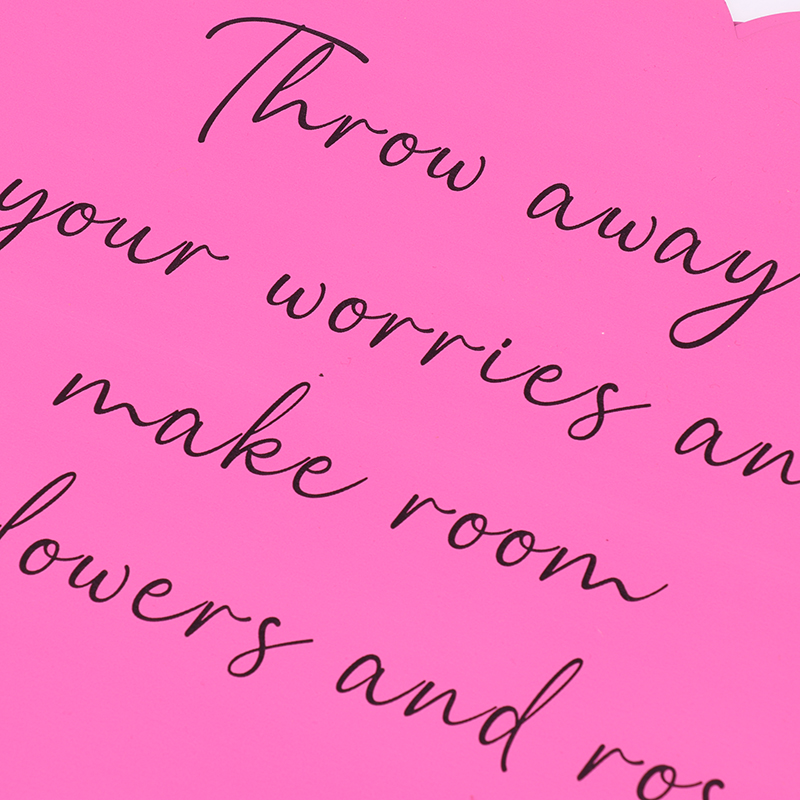 Throw away
your worries an
make room
lowers and ros